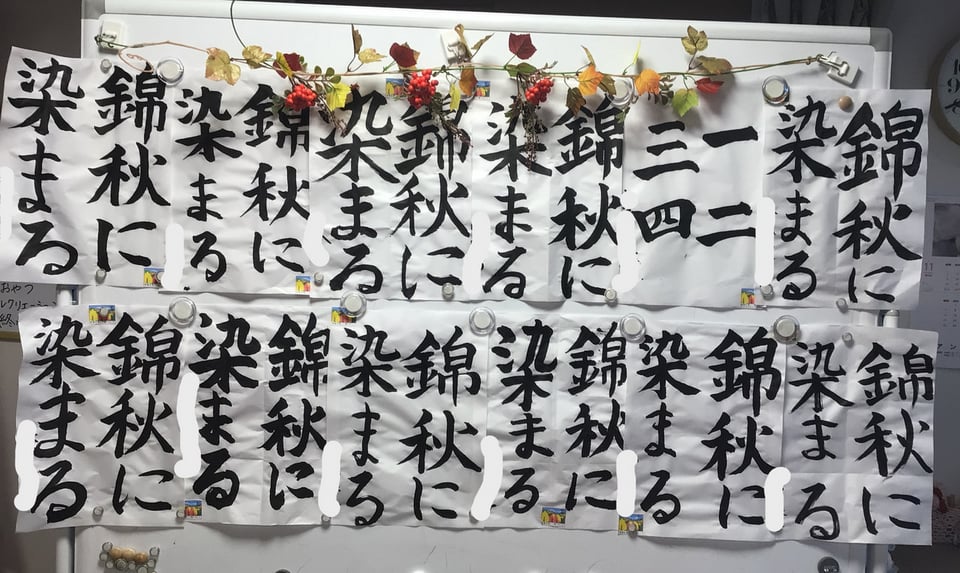 錦秋に
染まる
一二
三四
錦秋に
染まる
錦秋に
染まる
錦秋に
染まる
錦秋に
染まる
錦秋に
染まる
錦秋に
染まる
錦秋に
染まる
錦秋に
染まる
錦秋に
染まる
錦秋に
染まる
おやつ
11